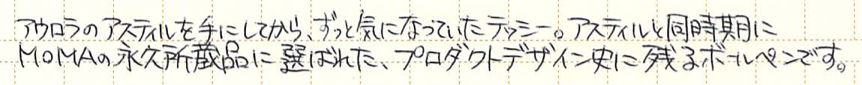 アウロラのアスティルを手にしてから、ずっと気になっていたテッシー。アスティルと同時期に
MOMAの永久所蔵品に選ばれた、プロダクトデザイン史に残るボールペンです。